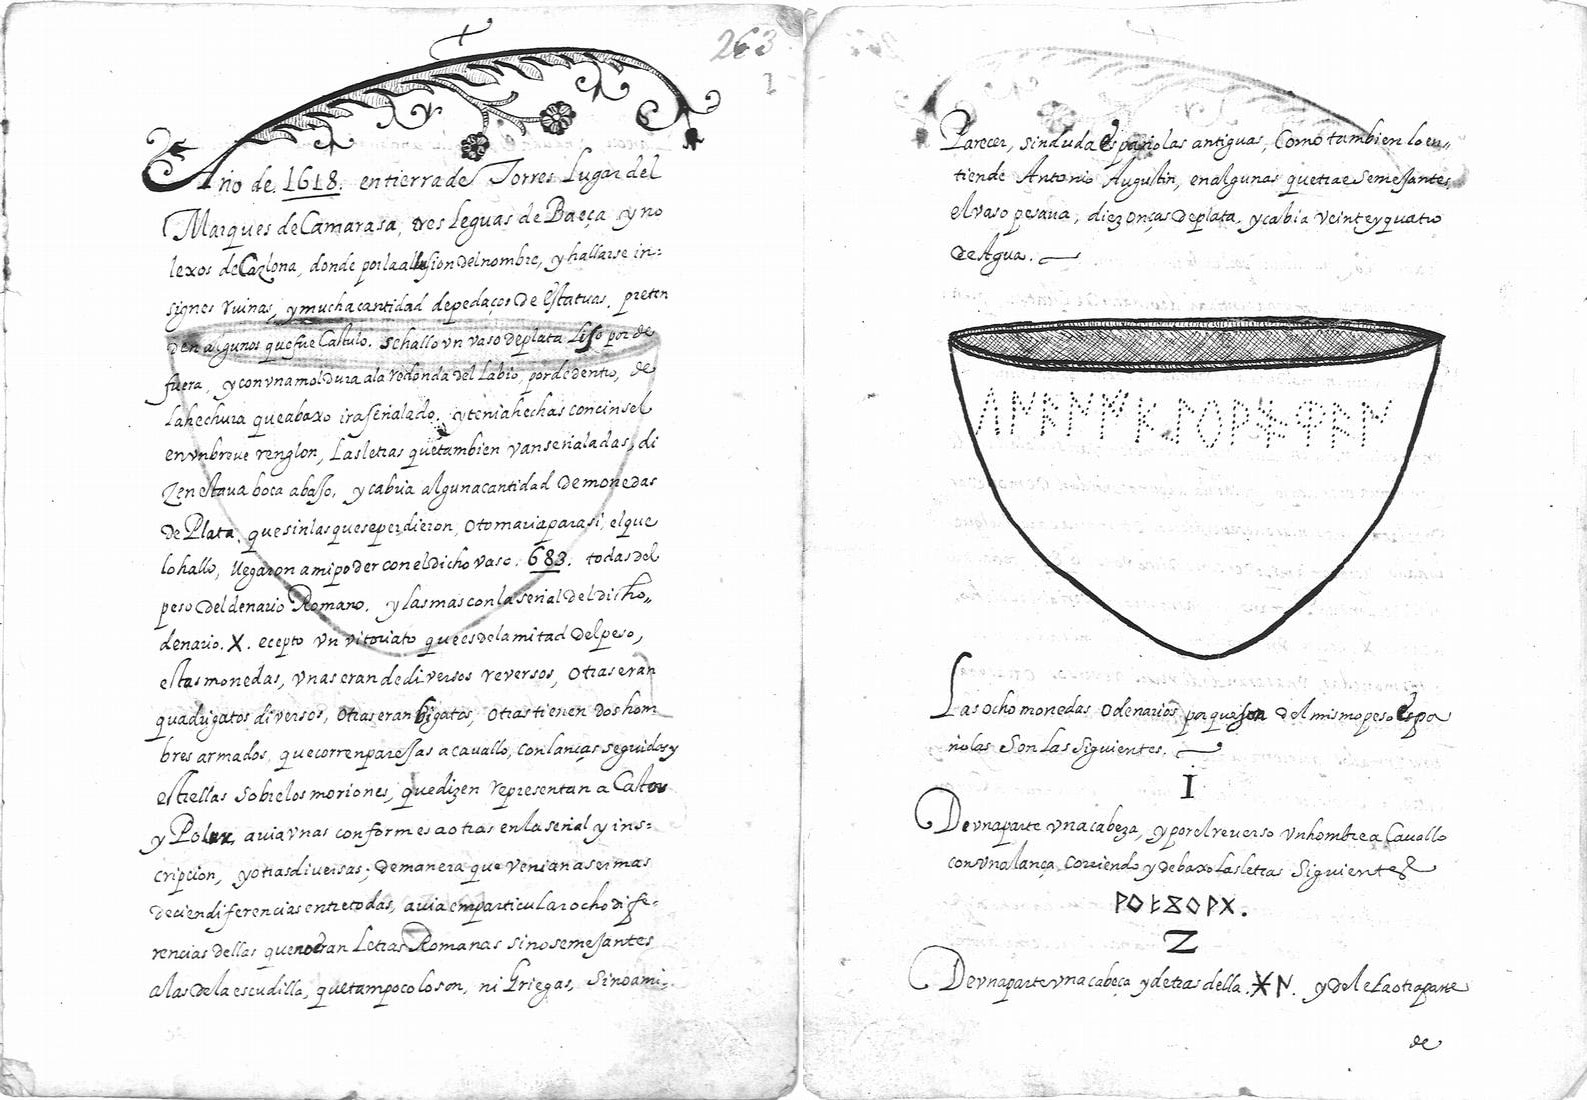 263
Año de. 1618. en tierra de Torres Lugar del
Marques de Camarasa, tres leguas de Baeça, y no
lexos de Cazlona, donde por la allusion del nombre, y hallarse in=
signes ruinas, y mucha cantidad de pedaços de Estatuas. preten
den algunos que fue Castulo. se hallo vn vaso de plata Liso por de
fuera, y con vna moldura a la redonda del Labio, por de dentro, de
la hechura que abaxo ira señalado. y tenia hechas con cinsel
en vn breue renglon, Las letras que tambien van señaladas, di
zen estaua boca abaxo, y cabia alguna cantidad de monedas
de Plata. que sin las que se perdieron, o tomaria para si, el que
lo hallo, llegaron a mi poder con el dicho vaso. 683. todas del
peso del denario Romano. y las mas con la señal del dicho,,
denario. X. ecepto vn vitoriato que es de la mitad del peso,
estas monedas, vnas eran de diversos reversos, otras eran
quadrigatos diversos, otras eran bigatos, otras tienen dos hom
bres armados, que corren parejas a cavallo, con lanças seguidos y
estrellas sobre los moriones, que dizen representan a Castor
y Polux, avia vnas conformes a otras en la señal y ins=
cripcion, y otras diversas; de manera que venian a ser mas
de cien diferencias entre todas, avia em particular ocho dife=
rencias dellas que no eran Letras Romanas sino semejantes
a las de la escudilla, que tampoco lo son, ni Griegas, Sino a mi=
Parecer, sin duda Españolas antiguas, Como tambien lo en,,
tiende Antonio Augustin, en algunas que trae Semejantes,
el vaso pesaua, diez onças de plata. y cabia veinte y quatro
de Agua.
Las ocho monedas o denarios porque son del mismo peso Espa
ñolas Son las Siguientes.
I
De vna parte vna cabeza, y por el reverso vn hombre a Cavallo
con vna lança corriendo y debaxo las letras Siguientes
2
De vna parte vna cabeça y detras della. y de la otra parte
de